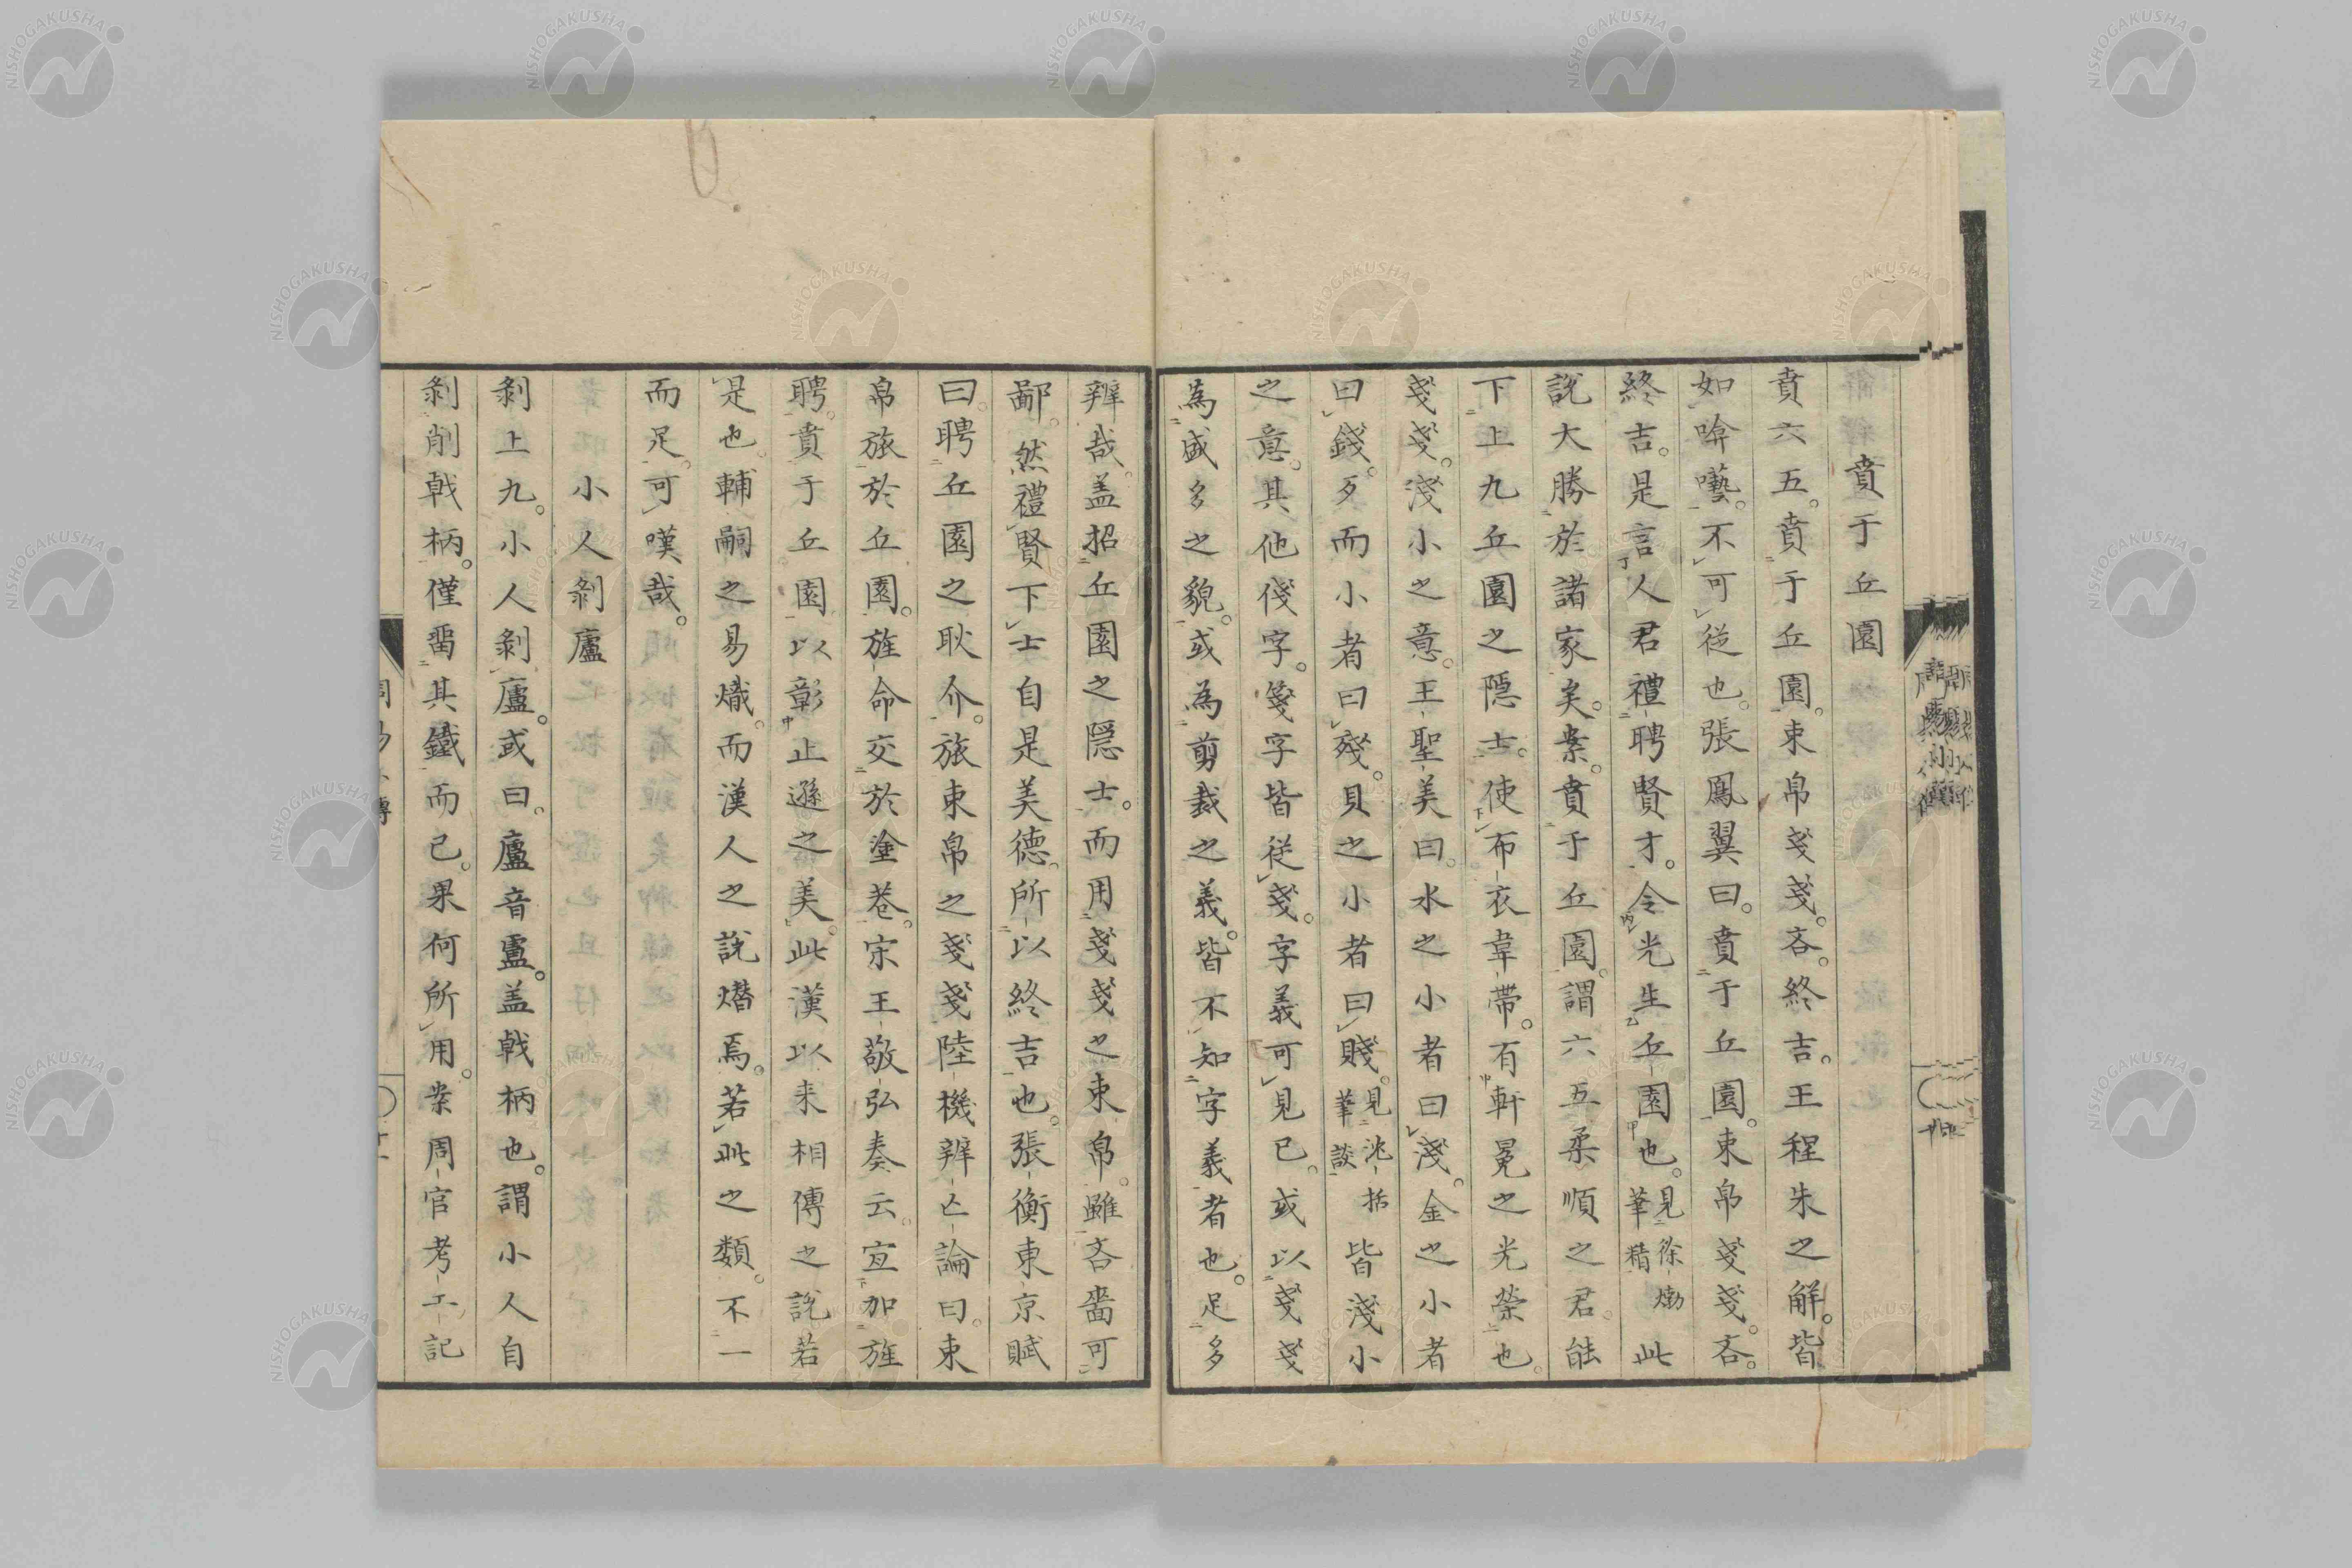 賁于丘園
賁六五。賁于丘園。束帛戔戔。吝。終吉。王程朱之解。皆
如啽囈。不可從也。張鳳翼曰。賁于丘園。束帛戔戔。吝。
終吉。是言人君禮聘賢才。令光生丘園也。見徐𤊹筆精此
說大勝於諸家矣。案。賁于丘園。謂六五柔順之君。能
下上九丘園之隱士。使布衣韋帶。有軒冕之光榮也。
戔戔。淺小之意。王聖美曰。水之小者曰淺。金之小者
曰錢。歹而小者曰殘。貝之小者曰賤。見沈括筆談皆淺小
之意。其他俴字。箋字皆從戔。字義可見已。或以戔戔
為盛多之貌。或為剪裁之義。皆不知字義者也。足多
辨哉。盖招丘園之隱士。而用戔戔之束帛。雖吝嗇可
鄙。然禮賢下士自是美德。所以終吉也。張衡東京賦
曰。聘丘園之耿介。旅束帛之戔戔。陸機辨亡論曰。束
帛旅於丘園。旌命交於塗巷。宋王敬弘奏云。宜加旌
聘。賁于丘園。以彰止遜之美。此漢以来相傳之說。若
是也。輔嗣之易熾。而漢人之說熸焉。若此之類。不一
而足。可嘆哉。
小人剝廬
剝上九。小人剝廬。或曰。廬音盧。盖戟柄也。謂小人自
剝削戟柄。僅留其鐵而已。果何所用。案周官考工記